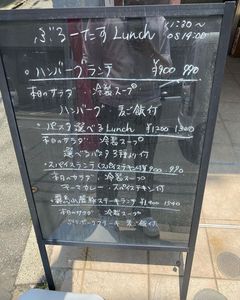 ぶろーにすLunch
11:30～
OS14:00
・ハンバーグランチ ¥900 990
本日のサラダ 冷製スープ
ハンバーグ 麦ご飯付
・パスタ選べるLunch ¥1200 1320
本日のサラダ 冷製スープ
選べるパスタ3種より 付
・スパイスランチ(スパイスチキン)¥900 990
本日のサラダ 冷製スープ
キーマカレー・スパイスチキン付
ステーキランチ ¥1400 1540
本日のサラダ 冷製スープ
麦ご飯付